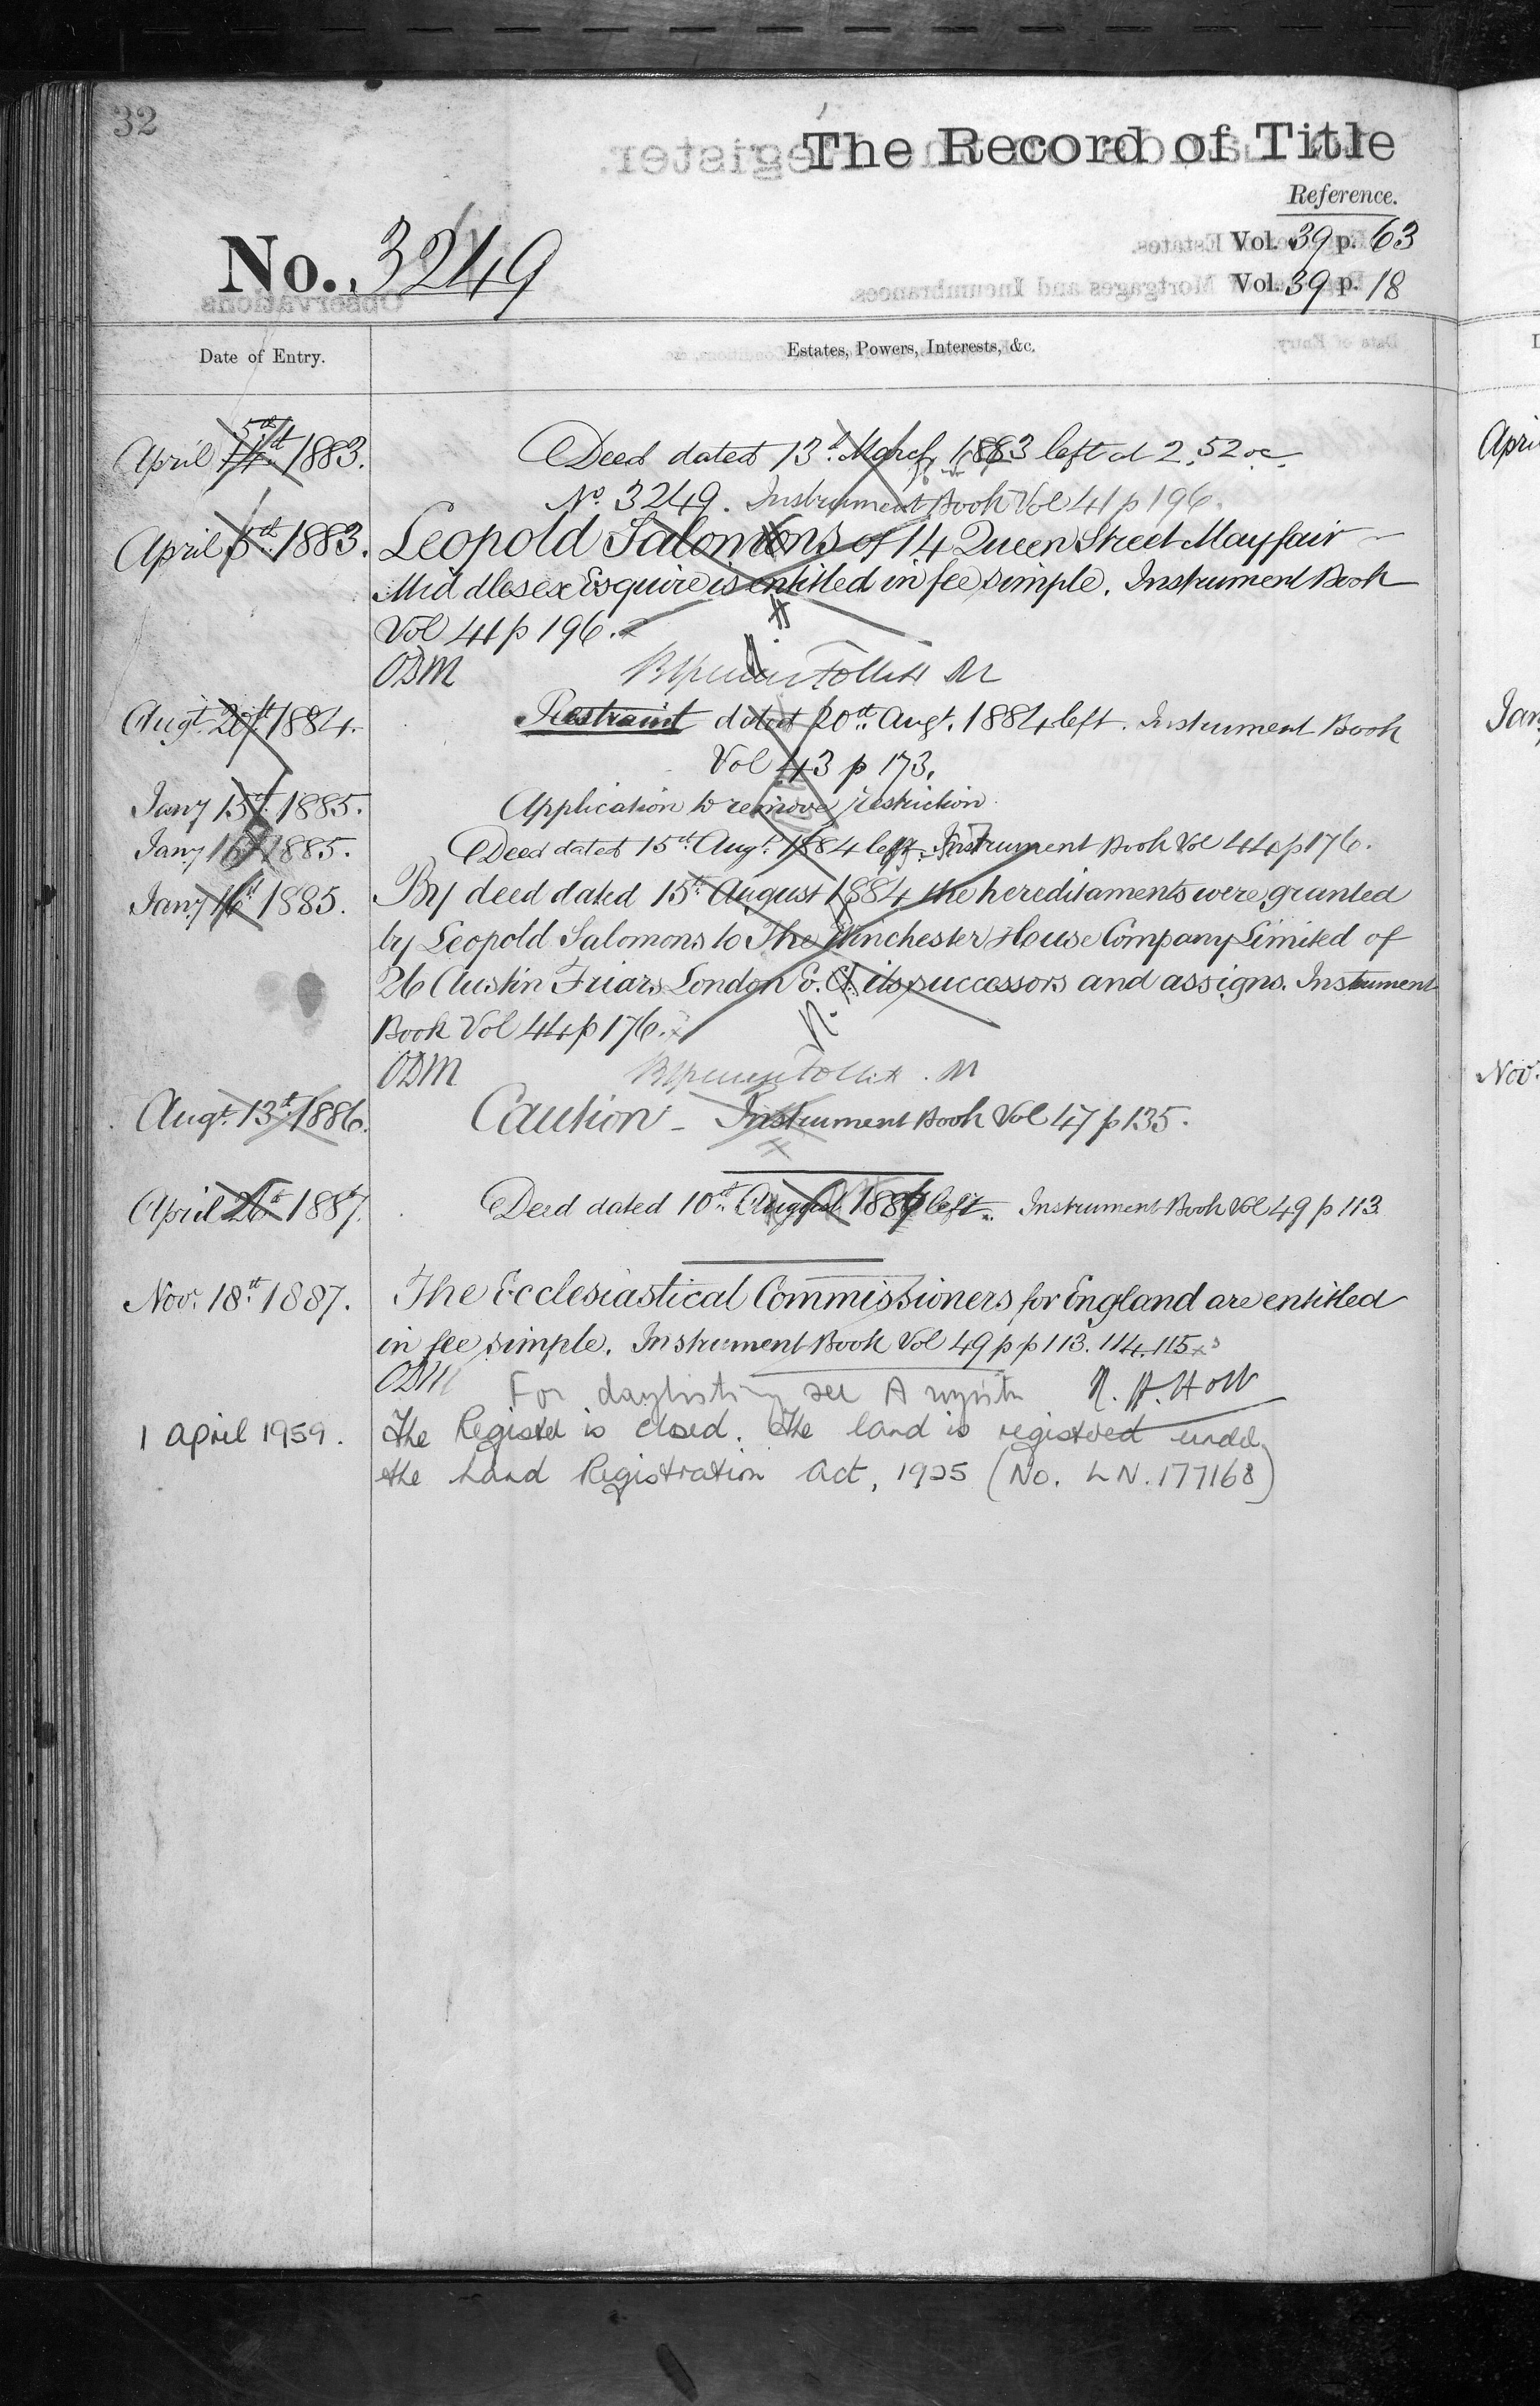 32
The Record of Title
Reference.
Vol. 39 p. 63
No. 3249
Vol. 39 p. 18
Date of Entry.
Estates, Powers, Interests, &c.
5th
April 1883.
Deed dated 13th March 1883 left at 2.52 oc.
No. 3249. Instrument Book Vol 41 p 196.
April 5th 1883.
Leopold Salomons of 14 Queen Street Mayfair
Middlesex Esquire is entitled in fee simple. Instrument Book
Vol 41 p 196.
ODM
Augt. 20th 1884.
Restraint dated 20th Augt. 1884 left. Instrument Book
Vol 43 p 173.
Jany 15th 1885.
Application to remove restriction.
Jany 16th 1885.
Deed dated 15th Augt. 1884 left. Instrument Book Vol 44 p 176.
Jany 16th 1885.
By deed dated 15th August 1884 the hereditaments were granted
by Leopold Salomons to The Winchester House Company Limited of
26 Austin Friars London E.C. its successors and assigns. Instrument
Book Vol 44 p 176.
ODM
Augt. 13th 1886.
Caution - Instrument Book Vol 47 p 135.
April 26th 1887.
Deed dated 10th August 1886 left. Instrument Book Vol 49 p 113
Nov. 18th 1887.
The Ecclesiastical Commissioners for England are entitled
in fee simple. Instrument Book Vol 49 p p 113. 114. 115
ODM
For see A R. H. Holt
1 April 1959.
The Register is closed. The land is registered under
the Land Registration Act, 1925 (No. LN. 177168)
April
Jan
Nov.